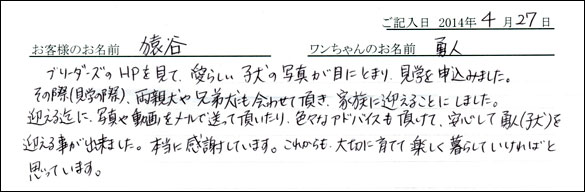 ご記入日 2014年 4月 27日
お客様のお名前 猿谷 ワンちゃんのお名前 勇人
ブリーダーズのHPを見て、愛らしい子犬の写真が目にとまり、見学を申込みました。
その際(見学の際)、両親犬や兄弟犬も会わせて頂き、家族に迎えることにしました。
迎える迄に、写真や動画をメールで送って頂いたり、色々なアドバイスも頂けて、安心して勇人(子犬)を
迎える事が出来ました。本当に感謝しています。これからも、大切に育てて楽しく暮らしていければと
思っています。